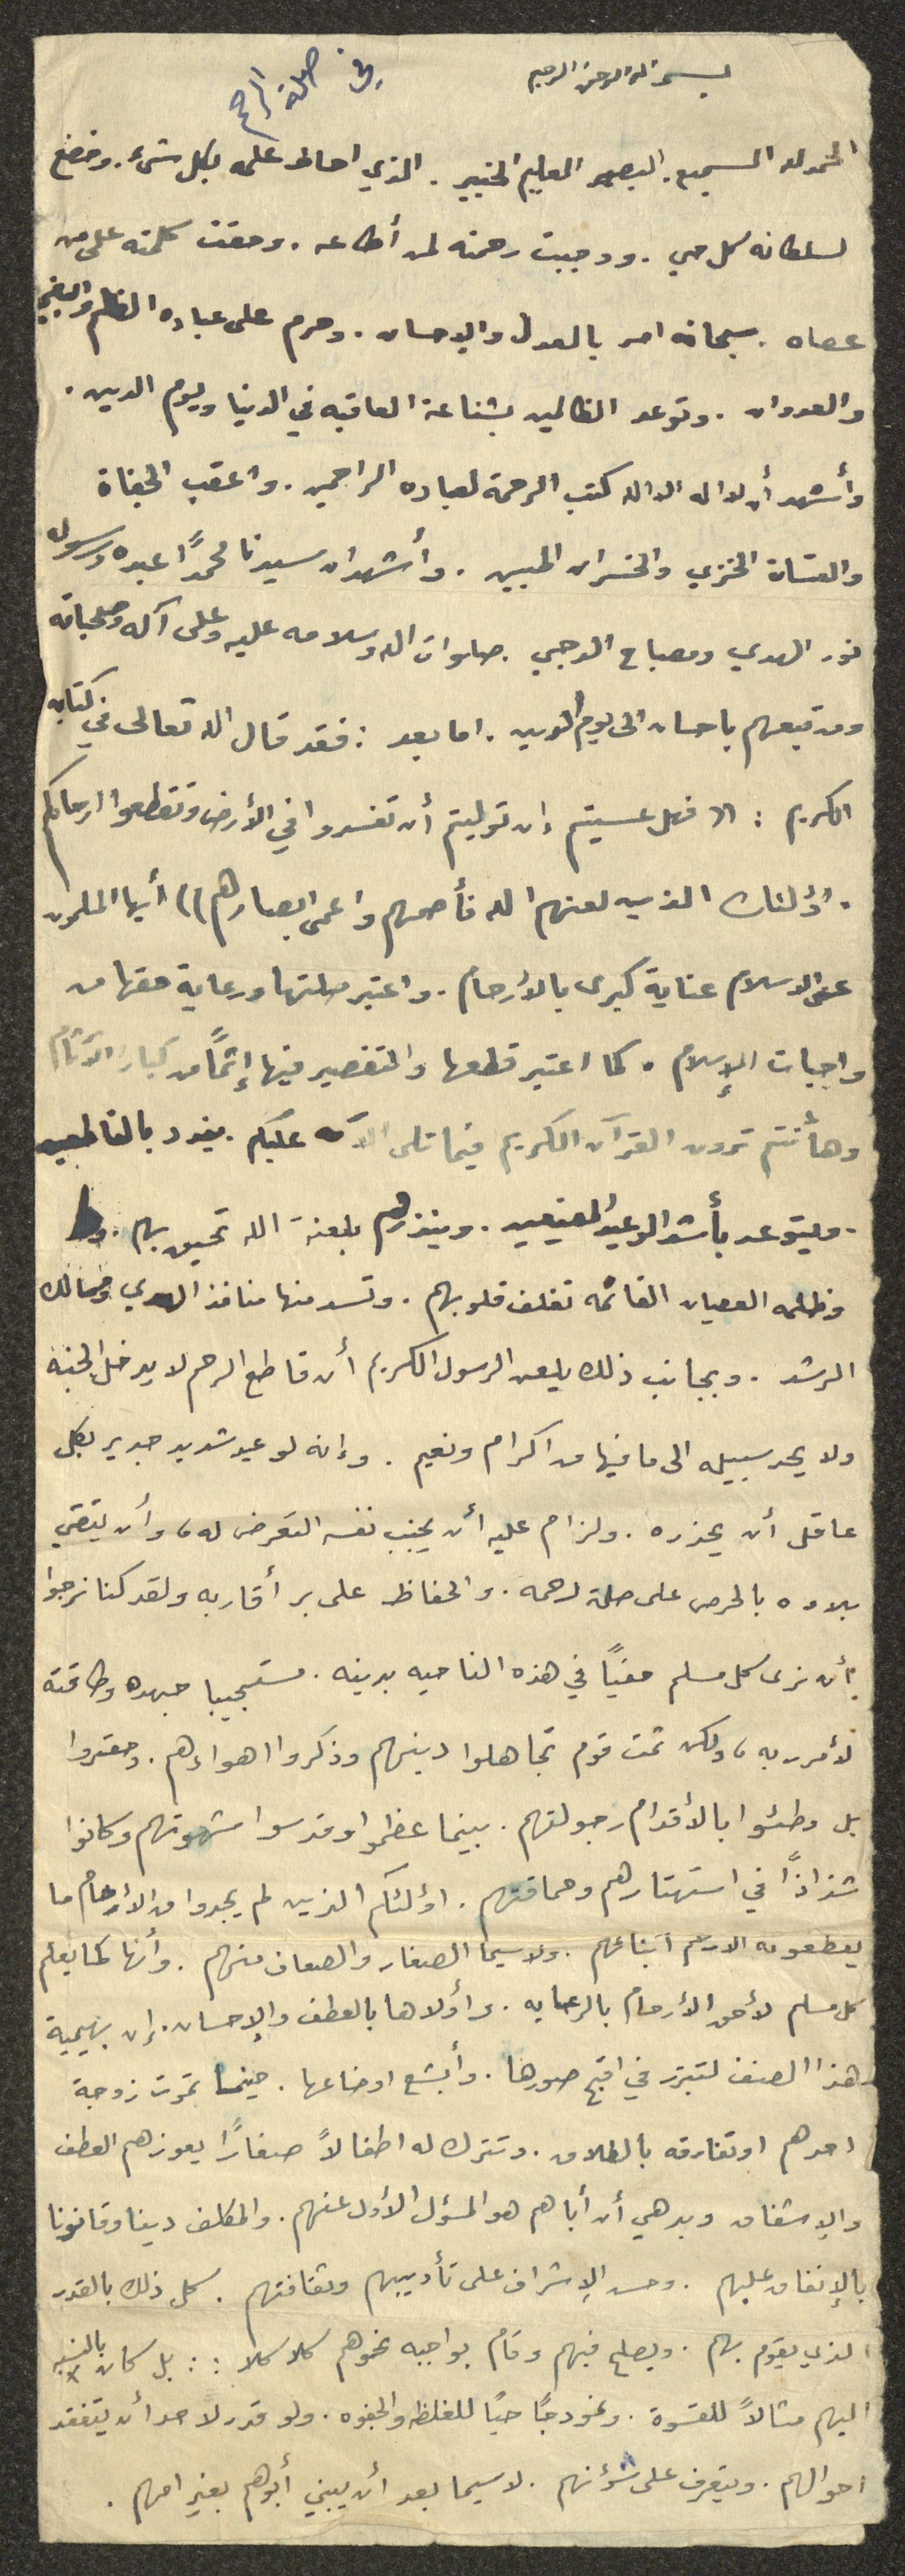 بسم الله الرحمن الرحيم
في صلة الرحم
الحمد لله السميع. البصير العليم الخبير. الذي احاط علمه بكل شيء. وخضع
لسلطانه كل حي. ووجبت رحمته لمن أطاعه. وحقت كلمته على من
عصاه. سبحانه امر بالعدل والإحسان. وحرم على عباده الظلم والبغي
والعدوان. وتوعد الظالمين بشناعة العاقبه في الدنيا ويوم الدين.
وأشهد أن لا اله الا الله كتب الرحمة لعباده الراحمين. واعقب الجفاة
والعتاة الخزي والخسران المبين. وأشهد ان سيدنا محمدًا عبده ورسوله
نور الهدي ومصباح الدجي. صلوات الله وسلامه عليه وعلى آله وصحابته
ومن تبعهم باحسان الى يوم الدين. اما بعد: فقد قال الله تعالى في كتابه
الكريم: (( فهل عسيتم إن توليتم أن تفسدوا في الأرض وتقطعوا ارحامكم
. اؤلئك الذين لعنهم الله فأصمهم واعمى ابصارهم)) أيها المسلمون
عنى الاسلام عناية كبرى بالأرحام. واعتبر صلتها ورعاية حقها من
واجبات الإسلام. كما اعتبر قطعها والتقصير فيها إثمًا من كبار الآثام
وها أنتم ترون القرآن الكريم فيما تلى الآن عليكم. يندد بالقاطعين
. ويتوعد بأشد الوعيد المضيعين. وينذرهم بلعنة الله تحيق بهم.
وظلمه العصيان القاتمه تغلف قلوبهم. وتسد منها منافذ الهدي ومسالك
الرشد. وبجانب ذلك يلعن الرسول الكريم أن قاطع الرحم لا يدخل الجنه
ولا يجد سبيله الى ما فيها من اكرام ونعيم. وإنه لوعيد شديد جدير بكل
عاقل أن يحذره. ولزام عليه أن يجنب نفسه التعرض له، وأن يتقي
بلاءه بالحرص على صلة رحمه. والحفاظ على بر أقاربه ولقد كنا نرجوا
أن نرى كل مسلم معنيًا في هذه الناحيه بدينه. مستجيبا جهده وطاقته
لأمر ربه، ولكن ثمت قوم تجاهلوا دينهم وذكروا اهواءهم. وحقروا
بل وطئوا بالأقدام رجولتهم. بينما عظموا وقدسوا شهوتهم وكانوا
شذاذًا في استهتارهم وحماقتهم. اولئكم الذين لم يجدوا من الأرحام ما
يقطعونه الا رحم ابنائهم. ولا سيما الصغار والضعاف منهم. وأنها كما يعلم
كل مسلم لأحق الأرحام بالرعايه. واؤلاها بالعطف والإحسان. إن بهيمية
هذا الصنف لتبرز في اقبح صورها. وأبشع اوضاعها. حينما تموت زوجة
احدهم او تفارقه بالطلاق. وتترك له اطفالاً صغارًا يعوزهم العطف
والإشفاق وبدهي أن أباهم هو المسؤل الأول عنهم. والمكلف دينا وقانونا
بالإنفاق عليهم. وحسن الإشراف على تأديبهم وثقافتهم. كل ذلك بالقدر
الذي يقوم بهم. ويصلح فيهم وقام بواجبه نحوهم كلا كلا :: بل كان بالنسبه
اليهم مثالاً للقسوة. ونموذجًا حيًا للغلظه والجفوه. ولو قدر لاحد أن يتفقد
احوالهم. ويتعرف على شؤنهم. لا سيما بعد أن يبني أبوهم بغير امهم.